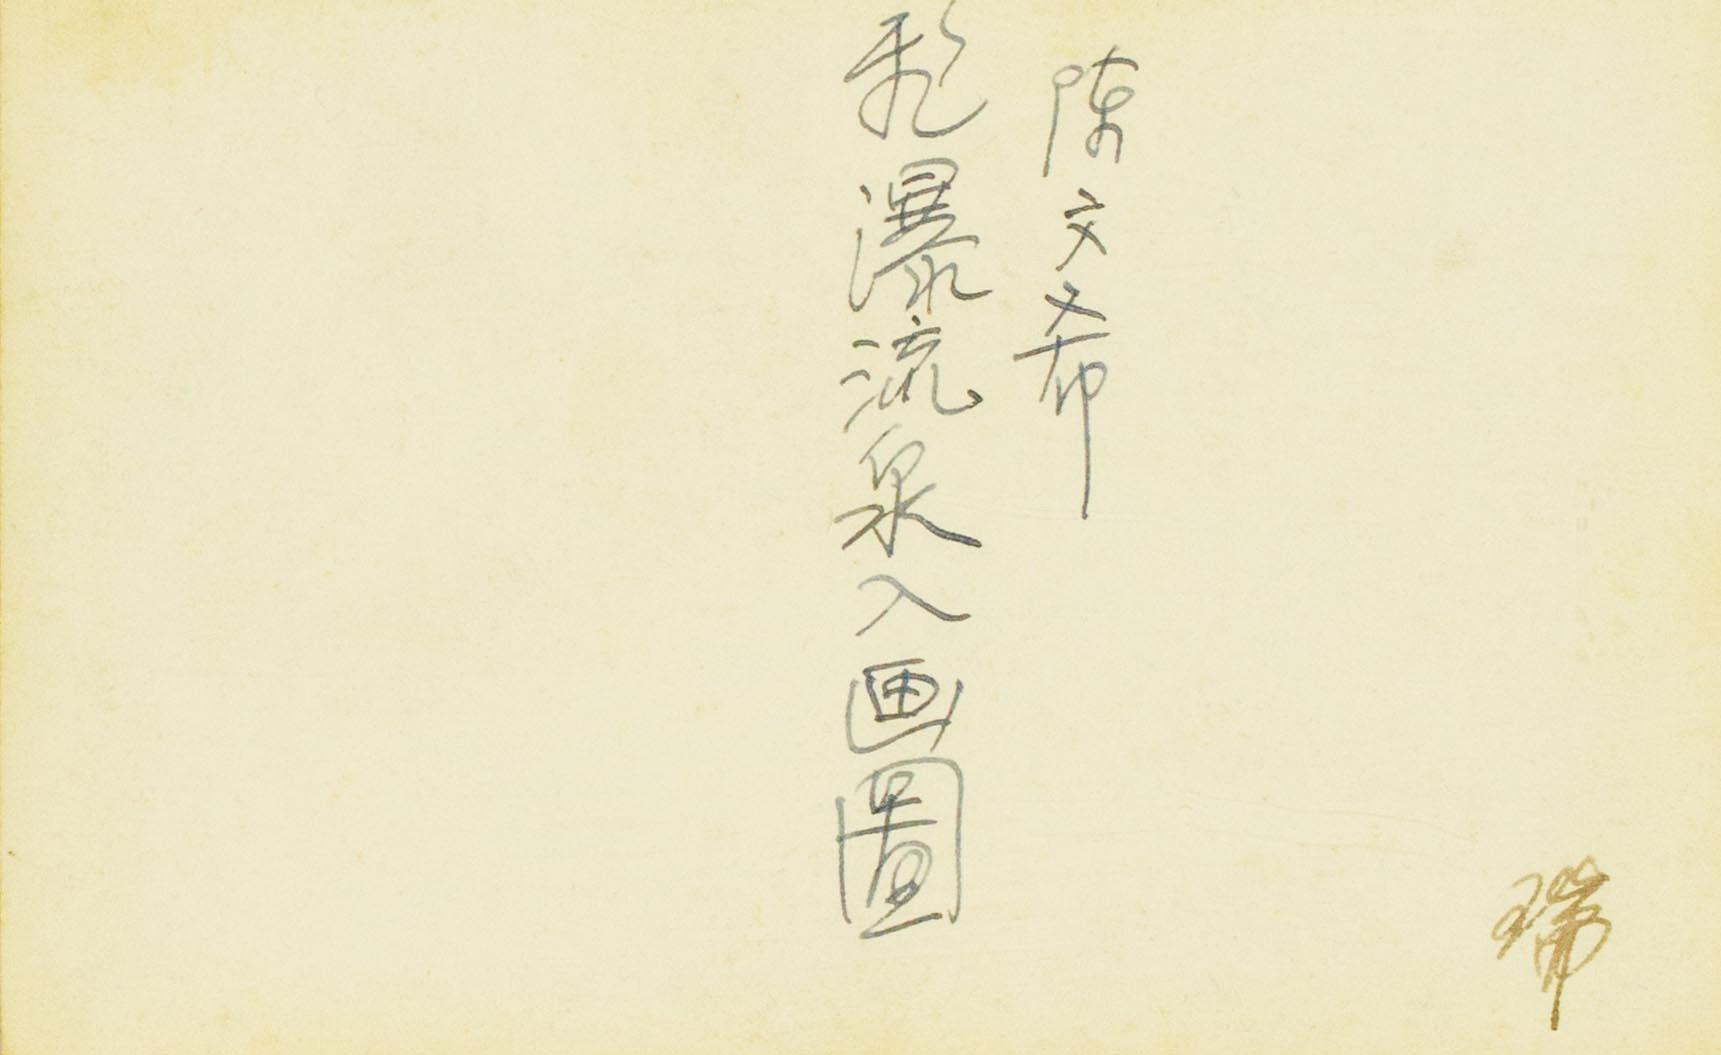 陳文希
飛瀑流泉入画圖
瑞